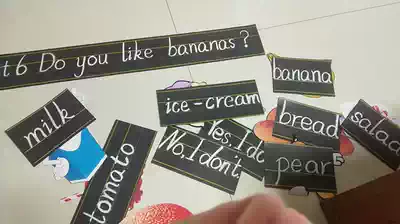 t 6 Do you like bananas?
banana
ice-cream
milk
bread
salad
Yes, I do
No, I don't.
pear
tomato